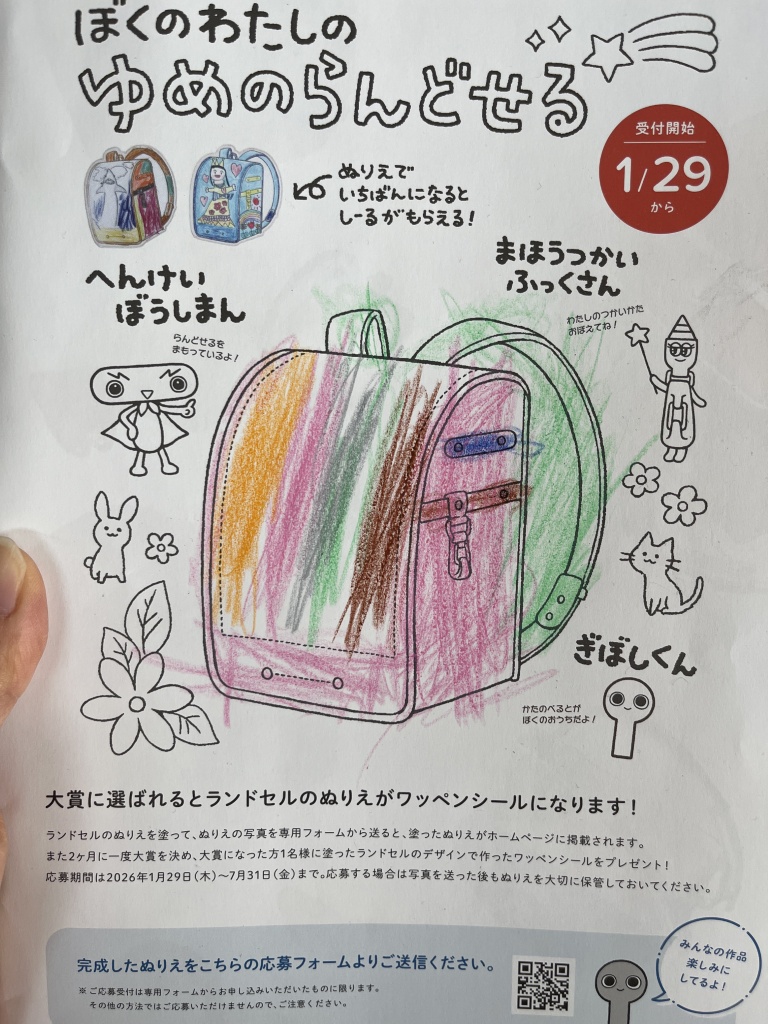 ぼくのわたしの
ゆめのらんどせる
受付開始
1/29
から
ぬりえで
いちばんになると
しーるがもらえる！
へんけい
ぼうしまん
らんどせるを
まもっているよ！
まほうつかい
ふっくさん
わたしのつかいかた
おぼえてね！
ぎぼしくん
かたのべるとが
ぼくのおうちだよ！
大賞に選ばれるとランドセルのぬりえがワッペンシールになります！
ランドセルのぬりえを塗って、ぬりえの写真を専用フォームから送ると、塗ったぬりえがホームページに掲載されます。
また2ヶ月に一度大賞を決め、大賞になった方1名様に塗ったランドセルのデザインで作ったワッペンシールをプレゼント！
応募期間は2026年1月29日（木）〜7月31日（金）まで。応募する場合は写真を送った後もぬりえを大切に保管しておいてください。
完成したぬりえをこちらの応募フォームよりご送信ください。
※ご応募受付は専用フォームからお申し込みいただいたものに限ります。
その他の方法ではご応募いただけませんので、ご注意ください。
みんなの作品
楽しみに
してるよ！